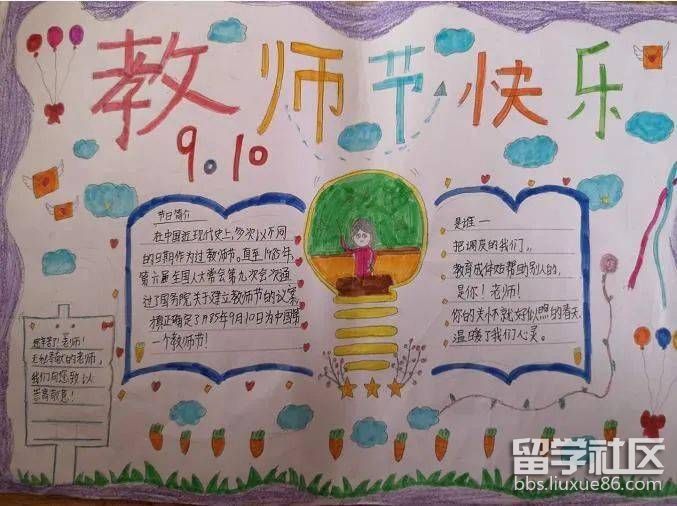 教师节快乐
9.10
节日简介
在中国近现代史上,多次以不同
的日期作为过教师节。直至1985年,
第六届全国人大常会第九次会议通
过了国务院关于建立教师节的议案,
真正确定了1985年9月10日为中国第
一个教师节!
是谁一
把调皮的我们,
教育成体贴帮助别人的,
是你!老师!
你的关怀就好似照的春天
温暖了我们心灵。
老师!
无私奉献的老师,
我们向您致以
崇高敬意!
留学社区
bbs.liuxue86.com